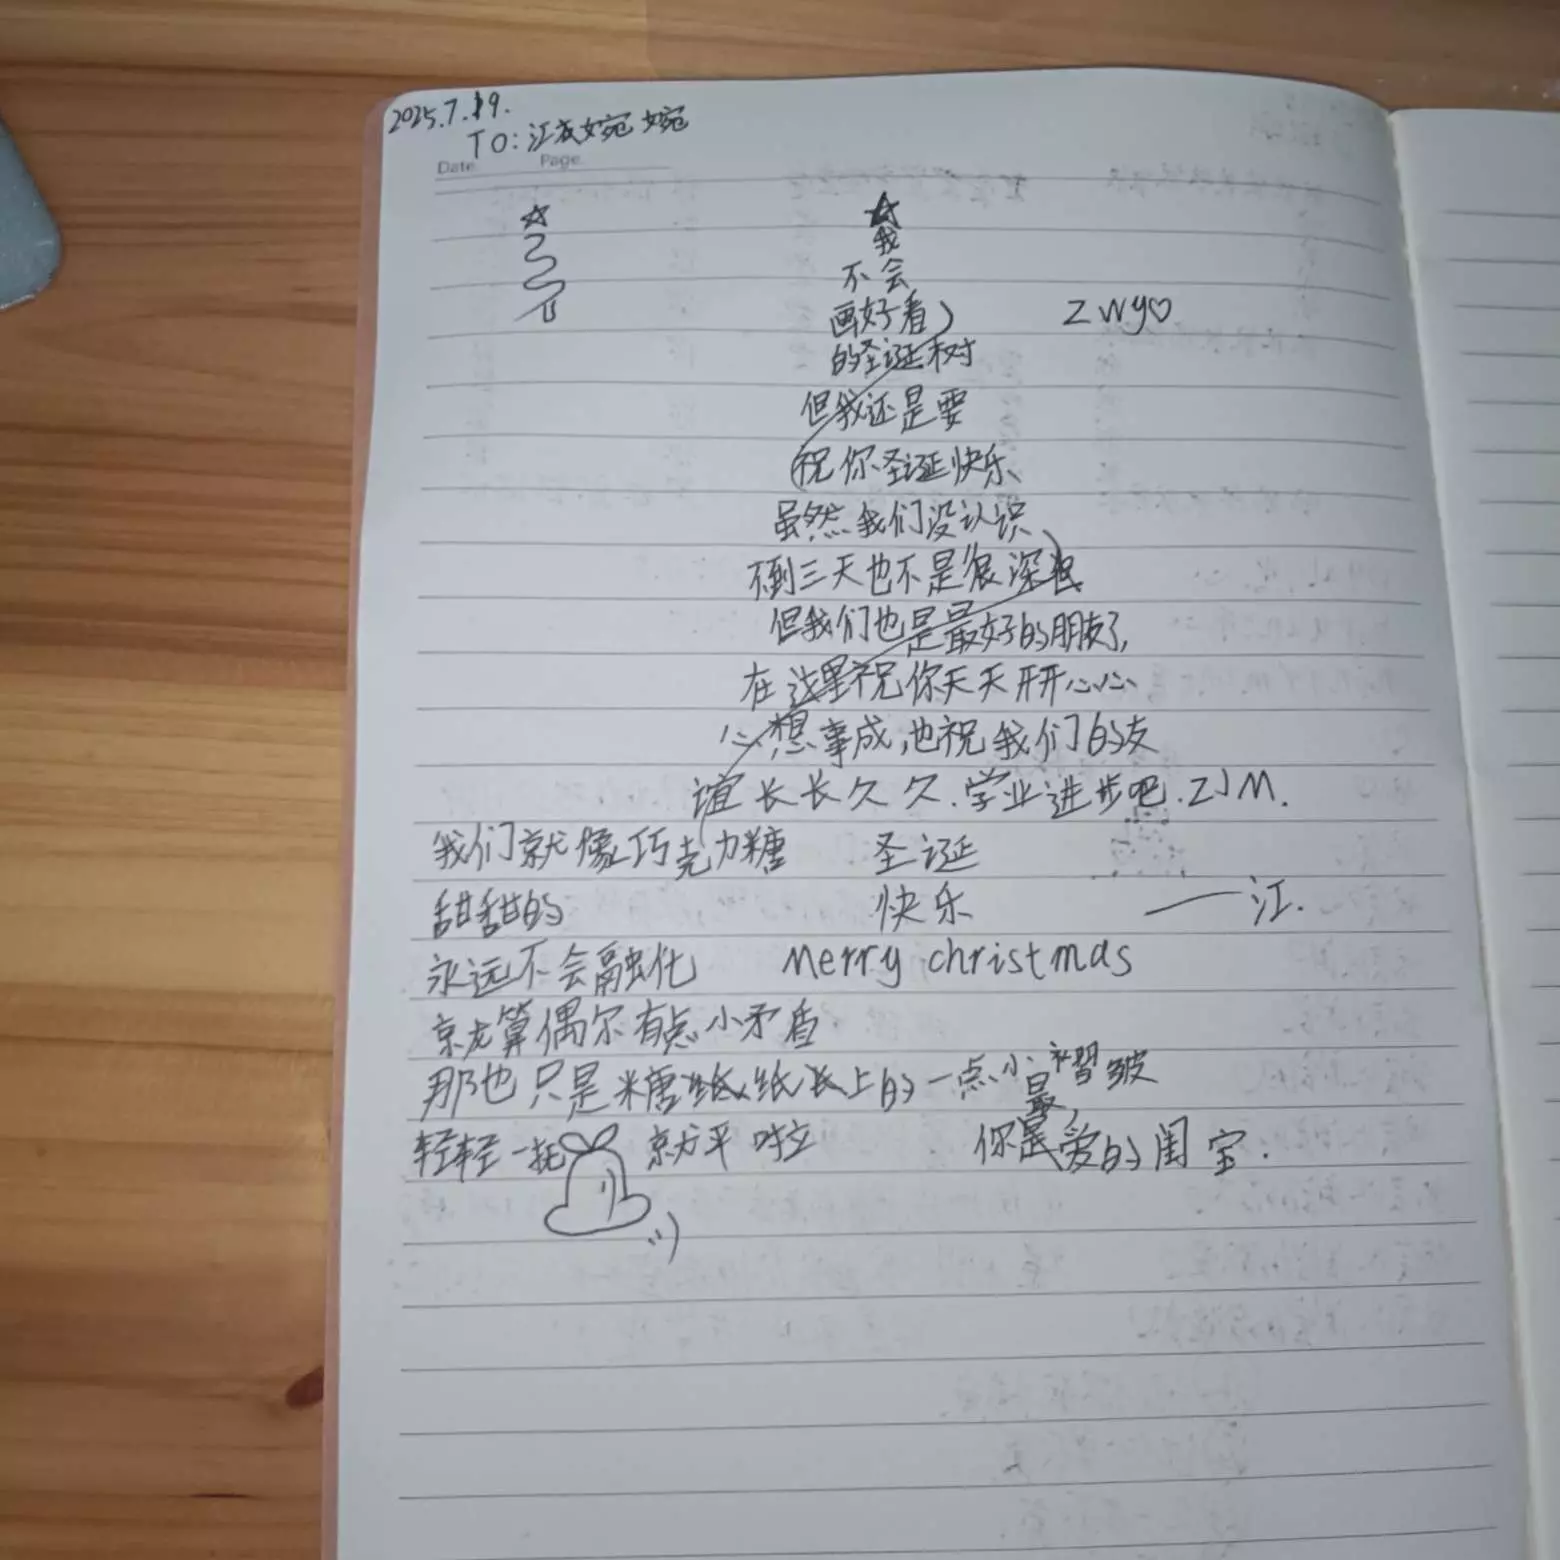 2025.7.19.
TO: 江衣婉婉
Date. Page.
我
不会
画好看
zwy♡
的圣诞树
但我还是要
祝你圣诞快乐
虽然我们没认识
不到三天也不是很深
但我们也是最好的朋友了,
在这里祝你天天开开心心
心想事成,也祝我们的友
谊长长久久.学业进步吧.ZJM.
我们就像巧克力糖 圣诞
甜甜的 快乐 ——江.
永远不会融化 Merry christmas
就算偶尔有点小矛盾
那也只是糖纸上的一点小褶皱
轻轻一抚 就方平啦 你是最爱的闺宝.